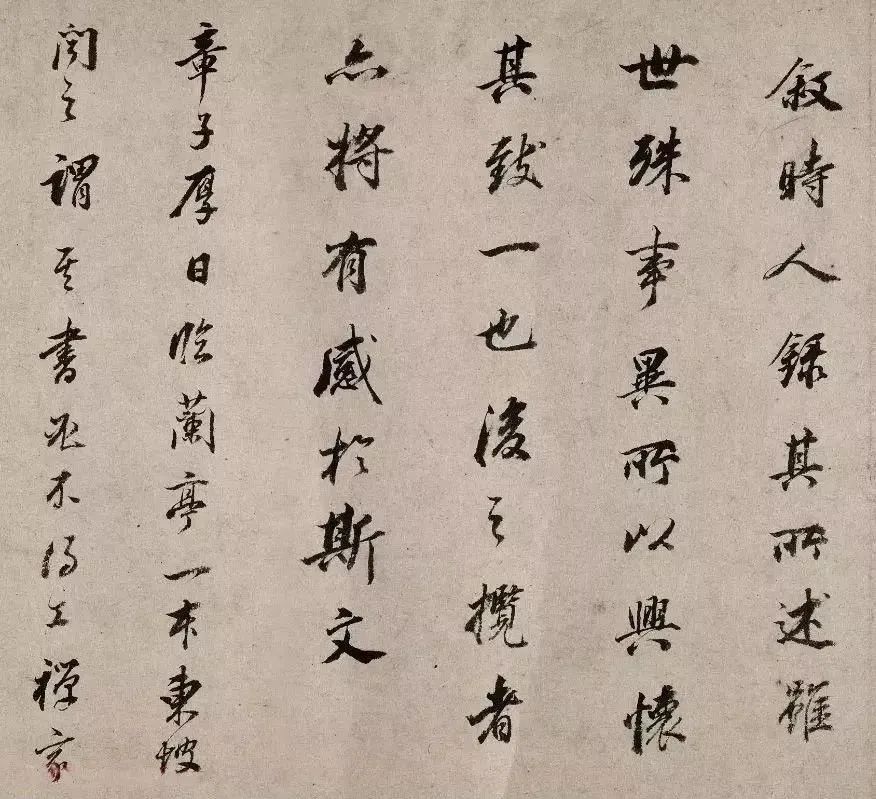 敘時人録其所述雖
世殊事異所以興懷
其致一也後之攬者
亦將有感於斯文
章子厚日臨蘭亭一本東坡
聞之謂其書必不得工禅家